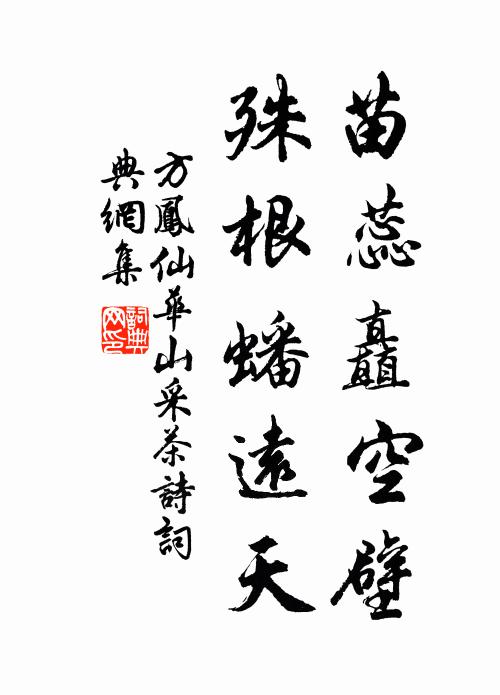 苗蕊矗空壁
殊根蟠遠天
方鳳仙華山采茶詩詞
典網集
詞典
网印